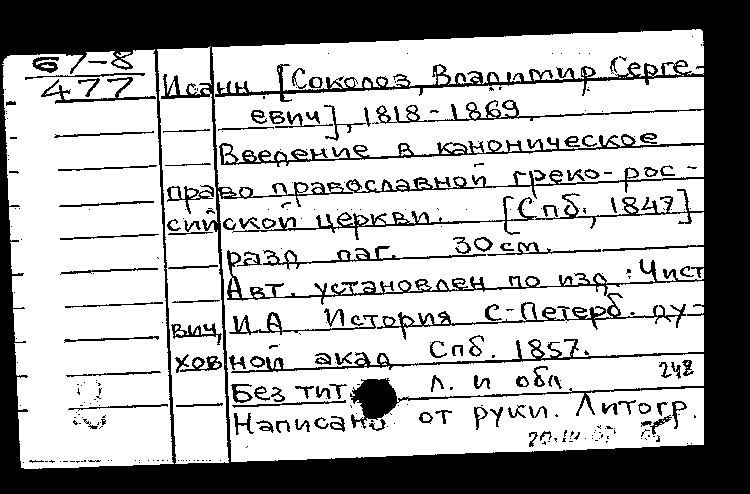 67-8
477
Иоанн [Соколов, Владимир Серге-
евич], 1818-1869.
Введение в каноническое
право православной греко-рос-
сийской церкви. [Спб., 1847]
разд паг. 30 см.
Авт. установлен по изд.: Чист
вич, И.А История С-Петерб. ду-
ховной акад Спб. 1857.
Без тит л. и обл. 248
Написано от руки. Литогр.